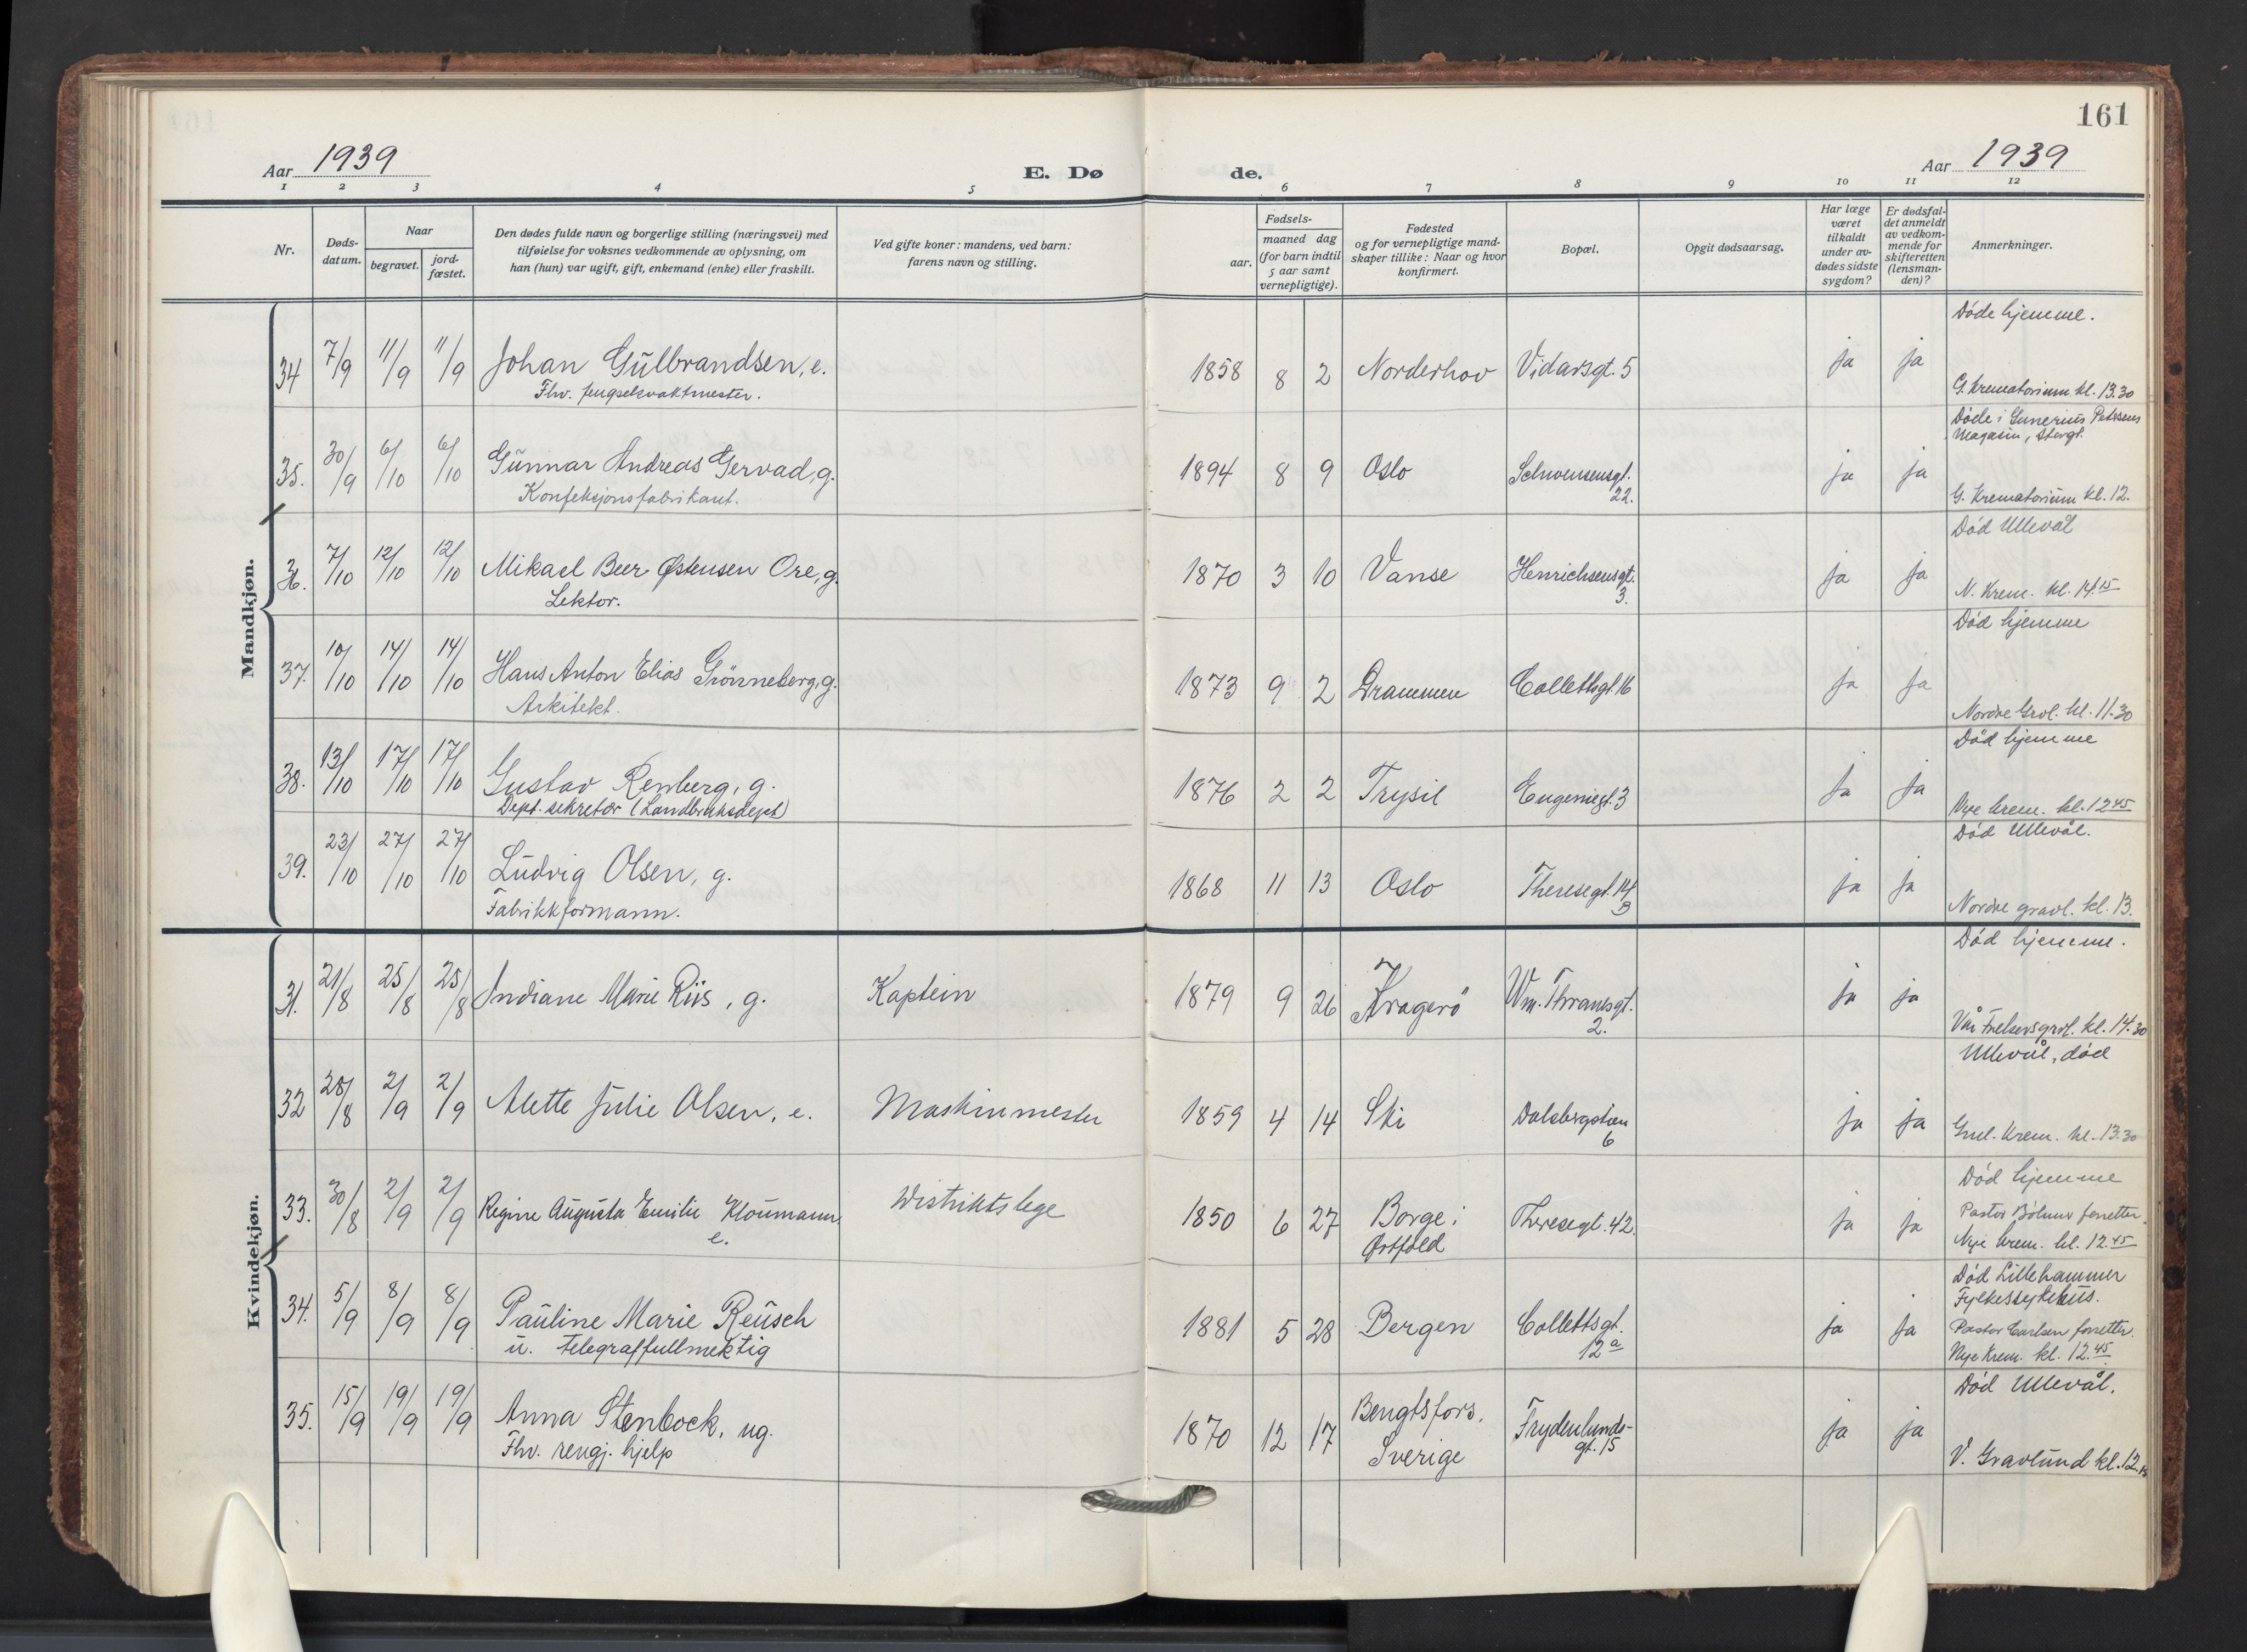 161
Aar 1939
E. Dø
de.
Aar 1939
1 2 3 4 5 6 7 8 9 10 11 12
Nr.
Døds-
datum.
Naar
begravet.
jord-
fæstet.
Den dødes fulde navn og borgerlige stilling (næringsvei) med
tilføielse for voksnes vedkommende av oplysning, om
han (hun) var ugift, gift, enkemand (enke) eller fraskilt.
Ved gifte koner: mandens, ved barn:
farens navn og stilling.
Fødsels-
aar.
maaned dag
(for barn indtil
5 aar samt
vernepligtige).
Fødested
og for vernepligtige mand-
skaper tillike: Naar og hvor
konfirmert.
Bopæl.
Opgit dødsaarsag.
Har læge
været
tilkaldt
under av-
dødes sidste
sygdom?
Er dødsfal-
det anmeldt
av vedkom-
mende for
skifteretten
(lensman-
den)?
Anmerkninger.
Mandkjøn.
Døde hjemme.
34 7/9 11/9 11/9 Johan Gulbrandsen, e. 1858 8 2 Norderhov Vidarsgt. 5 ja ja
Fhv. fengselsvaktmester.
G. Krematorium kl. 13.30
Døde i Gunerius Pettersens
Magasin, Storgt.
35. 30/9 6/10 6/10 Gunnar Andreas Gervad, g. 1894 8 9 Oslo Schwensensgt. 22. ja ja
Konfeksjonsfabrikant.
G. Krematorium kl. 12.
Død Ullevål
36. 7/10 12/10 12/10 Mikael Beer Østensen Ore, g. 1870 3 10 Vanse Henrichsensgt. 3. ja ja
Lektor.
N. Krem. kl. 14.15
Død hjemme
37. 10/10 14/10 14/10 Hans Anton Elias Grønneberg, g. 1873 9 2 Drammen Collettsgt. 16 ja ja
Arkitekt.
Nordre Gravl. kl. 11.30
Død hjemme
38. 13/10 17/10 17/10 Gustav Renberg, g. 1876 2 2 Trysil Eugeniegt. 3 ja ja
Dept. sekretær (Landbruksdept)
Nye krem. kl. 12 45
Død Ullevål.
39. 23/10 27/10 27/10 Ludvig Olsen, g. 1868 11 13 Oslo Theresegt. 14 B ja ja
Fabrikkformann.
Nordre gravl. kl. 13.
Kvindekjøn.
Død hjemme.
31. 21/8 25/8 25/8 Indiane Marie Riis, g. Kaptein 1879 9 26 Kragerö Wm. Thranesgt. 2. ja ja
Vår Frelsersgrvl. kl. 14.30
Ullevål, død
32 28/8 2/9 2/9 Alette Julie Olsen, e. Maskinmester 1859 4 14 Ski Dalsbergstien 6 ja ja
Gml. Krem. kl. 13.30
Død hjemme
33. 30/8 2/9 2/9 Regine Augusta Emilie Kloumann, e. Distriktslege 1850 6 27 Borge i Østfold Theresegt. 42. ja ja
Pastor forretter.
Nye krem. kl. 12.45
Død Lillehammer
Fylkessykehus.
34. 5/9 8/9 8/9 Pauline Marie Reusch 1881 5 28 Bergen Collettsgt. 12a ja ja
u. Telegraffullmektig
Pastor Carlsen forretter.
Nye Krem. kl. 12.45
Død Ullevål.
35. 15/9 19/9 19/9 Anna Stenbock, ug. 1870 12 17 Bengtsfors, Sverige Frydenlunds-
gt. 15 ja ja
Fhv. rengj. hjelp
V. Gravlund kl. 12.